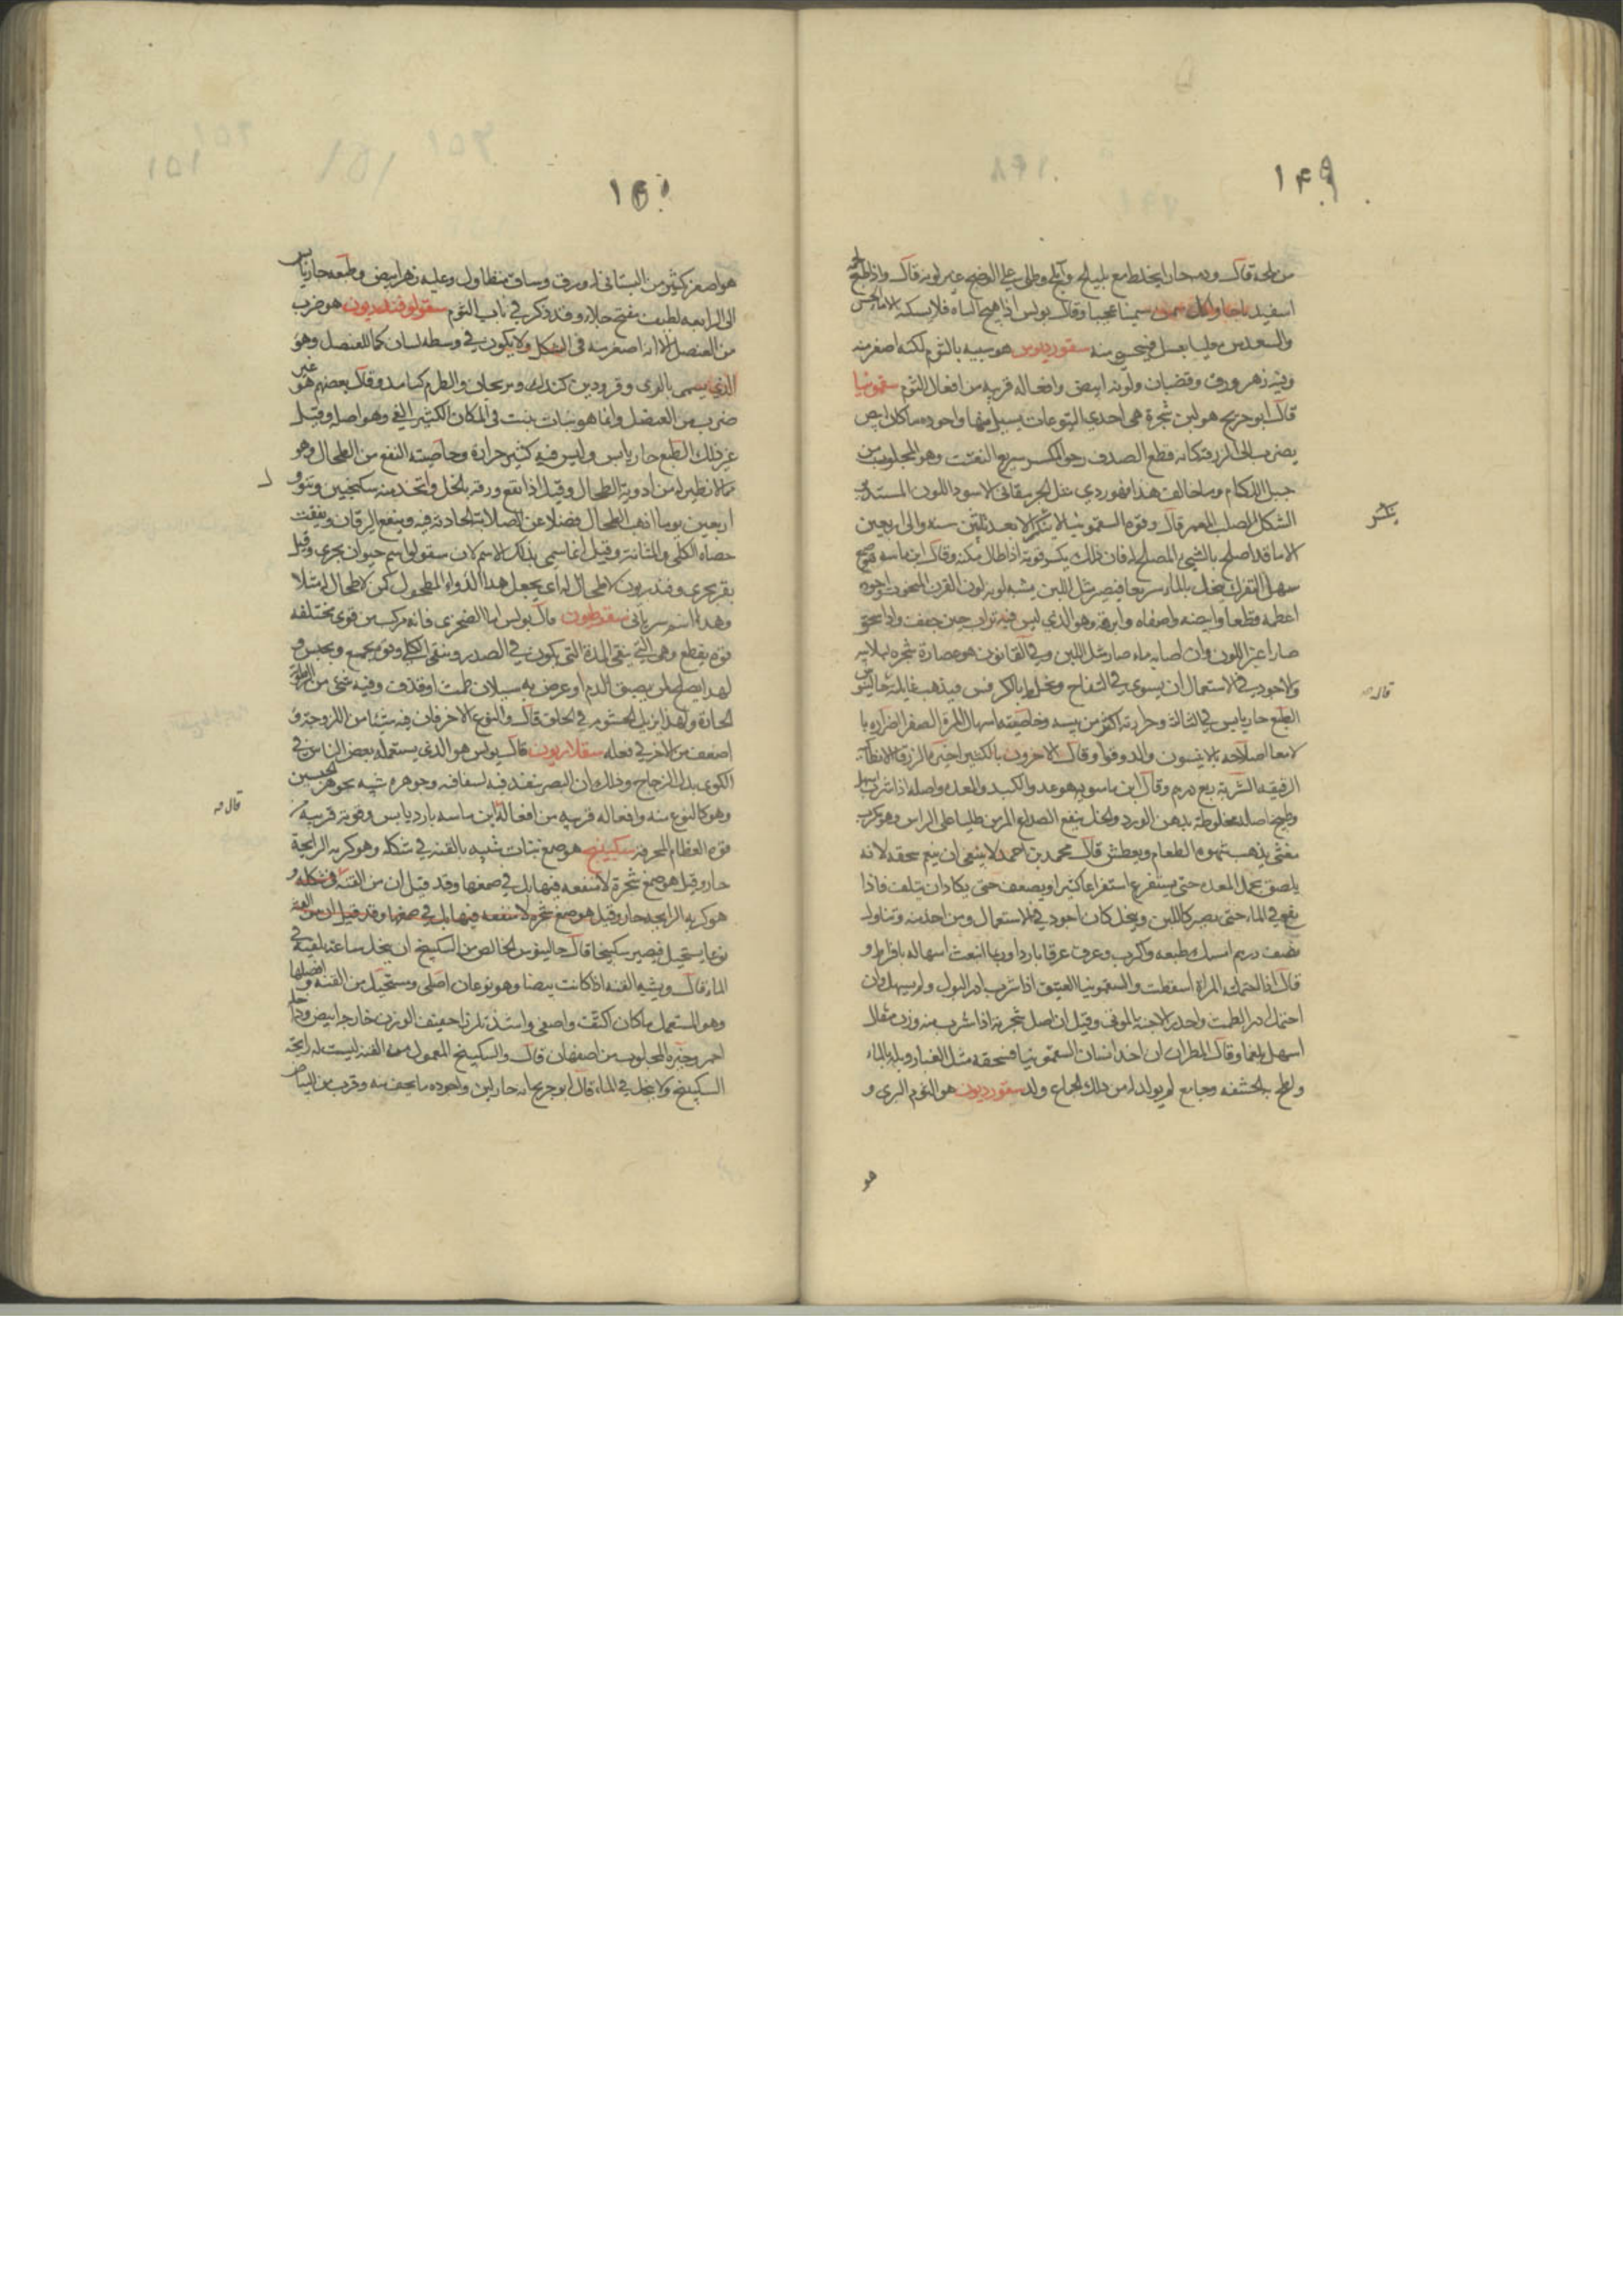 ١۴٩
من لحمه قال ودمه حار يخلط مع بليلج وآملج وطلى على الوضح غير لونه قال واذا طبخ لحمه
اسفيدباجا واكل سمن سمينا عجيبا وقال بولس اذا هيج الباه فلا يسكنه الا ماء الخس
والعدس بعسل منه سقورديوس هو شبيه بالثوم لكنه اصغر منه
وفيه زهر وورق وقضبان ولونه ابيض وافعاله قريبه من افعال الثوم سقمونيا
قال ابو جريج هو لبن شجرة هى احدى اليتوعات يسيل منها واجوده ما كان ابيض
يضرب الى الزرقة كانه قطع الصدف رخو المكسر سريع التفتت وهو المجلوب من
جبل اللكام وما خالف هذا الاسود اللون المستدير
الشكل الصلب المعمر قال وقوة السقمونيا لا تنكسر الا بعد ثلثين سنه والى اربعين
الا ما قد اصلح بالشىء المصلح له فان ذلك يكسر قوته اذا طال مكثه وقال ابن ماسه هو صمغ
سهل التفرك ينحل بالماء سريعا فيصير مثل اللبن يشبه لونه لون القرن المنحوت واجوده
اعظمه قطعا وابيضه واصفاه وابرقه وهو الذى ليس فيه تراب حين جفف واذا سحق
صار اغبر اللون وان اصابه ماء صار مثل اللبن وفى القانون هو عصارة شجره لبلابيه
والاجود فى الاستعمال ان يشوى فى التفاح ويخلط بالكرفس فيذهب غايلته جالينوس
الطبع حار يابس فى الثالثة وحرارته اكثر من يبسه وخاصيته اسهال المرة الصفرا اضراره با
لامعا اصلاحه بالانيسون والدوقوا وقال الاخرون بالكثيرا خيره الازرق
الشربة ربع درهم وقال ابن ماسويه هو عدو الكبد والمعده واصله اذا شرب اسهل
واصله مخلوطة بدهن الورد والخل ينفع الصداع المزمن طليا على الراس وهو مكرب
مغثى يذهب شهوه الطعام ويعطش قال محمد بن احمد لا ينبغى ان ينعم سحقه لانه
يلصق بخمل المعده حتى يستفرغ استفراغا كثيرا ويضعف حتى يكاد ان يتلف فاذا
نقع فى الماء حتى يصير كاللبن وينحل كان اجود فى الاستعمال ومن اخذ منه وتناول
نصف درهم امسك طبعه واكرب وعرق عرقا باردا وربما انبعث اسهاله بافراط و
قال اذا احتملته المراة اسقطت والسقمونيا العتيق اذا شرب ادر البول ولم يسهل وان
احتمل ادر الطمث واحدر الاجنة بالموتى وقيل ان اصل شجرته اذا شرب منه وزن مثقال
اسهل بلغما وقال الطبرى ان اخذ انسان السقمونيا فسحقه مثل الغبار وبله بالماء
ولطخ به الحشفه وجامع لم يولد له من ذلك الجماع ولد سقورديون هو الثوم البرى و
هو
ينكسر
قاله
١۵٠
هو اصغر كثير من البستانى له ورق وساق متطاول وعليه زهر ابيض وطبعه حار يابس
الى الرابعه لطيف مفتح جلاء وقد ذكر فى باب الثوم سقولوفندريون هو ضرب
من العنصل الا انه اصغر منه فى الشكل ولا يكون فى وسطه لسان كما للعنصل وهو
الذى يسمى وقال بعضهم هو غير
ضرب من العنصل وانما هو نبات ينبت فى المكان الكثير الفى وهو اصله وقيل
غير ذلك الطبع حار يابس وليس فيه كثير حرارة وخاصيته النفع من الطحال وهو
مما لا نظير له من ادوية الطحال وقيل اذا نقع ورقه بالخل واتخذ منه سكنجبين
اربعين يوما اذهب الطحال فضلا عن الصلابة الحادثة فيه وينفع اليرقان ويفتت
حصاة الكلى والمثانة وقيل انما سمى بذلك الاسم لان سقولو اسم حيوان بحرى وقيل
بقر بحرى وفندريون لا طحال له اى يجعل هذا الدواء المطحول كمن لا طحال له مثلا
وهذا اسم سريانى سقوطيون قال بولس اما الصخرى فانه مركب من قوى مختلفه
قوه يقطع وهى التى ينقى المدة التى يكون فى الصدر وينقى الكلى وقوه يجمع ويحبس و
لهذا يصلح لمن يبصق الدم او عرض به سيلان طمث او قذف وفيه شىء من الرطوبة
الحارة ولهذا يزيل الخشونه فى الحلق قال والنوع الاخر فان فيه شيئا من اللزوجة و
اضعف من الاخر فى فعله سقلاريون قال بولس هو الذى يستعمله بعض الناس فى
الكوى بدل الزجاج وذلك ان البصر ينفذ فيه لشفافه وجوهره شبيه بجوهر الجبسين
وهو كالنوع منه وافعاله قريبه من افعاله ابن ماسه بارد يابس وقوته قريبه من
قوه العظام المحرقة سكبينج هو صمغ نبات شبيه بالقنه فى شكله وهو كريه الرايحة
حار وقيل هو صمغ شجرة لا منفعه فيها بل فى صمغها وقد قيل ان من القنه فى شكله و
هو كريه الرايحه حار وقيل هو صمغ شجره لا منفعه فيها بل فى صمغها وقد قيل ان من القنه
نوعا يستحيل فيصير سكبينجا قال جالينوس الخالص من السكبينج ان ينحل ساعة يلقيه فى
الماء قال ويشبه القنه اذا كانت بيضا وهو نوعان اصلى ومستحيل من القنه وافضلها
وهو المستعمل ما كان اكثف واصفى واشد تلززا خفيف الوزن خارجه ابيض وداخله
احمر وخيره المجلوب من اصفهان قال والسكبينج المعمول من القنه ليست له رايحة
السكبينج ولا ينحل فى الماء قال ابو جريج انه حار لين واجوده ما يجف منه وقرب من البياض
قاله